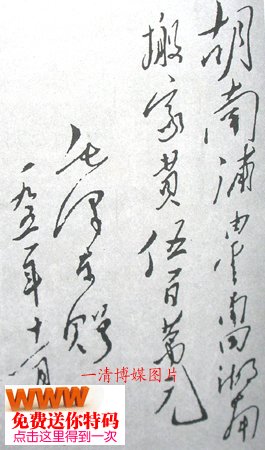 胡南浦由云南回湖南
搬家费伍百万元
毛泽东赠
一九五一年十一月
一清博媒图片
WWW
免费送你特码
点击这里得到一次